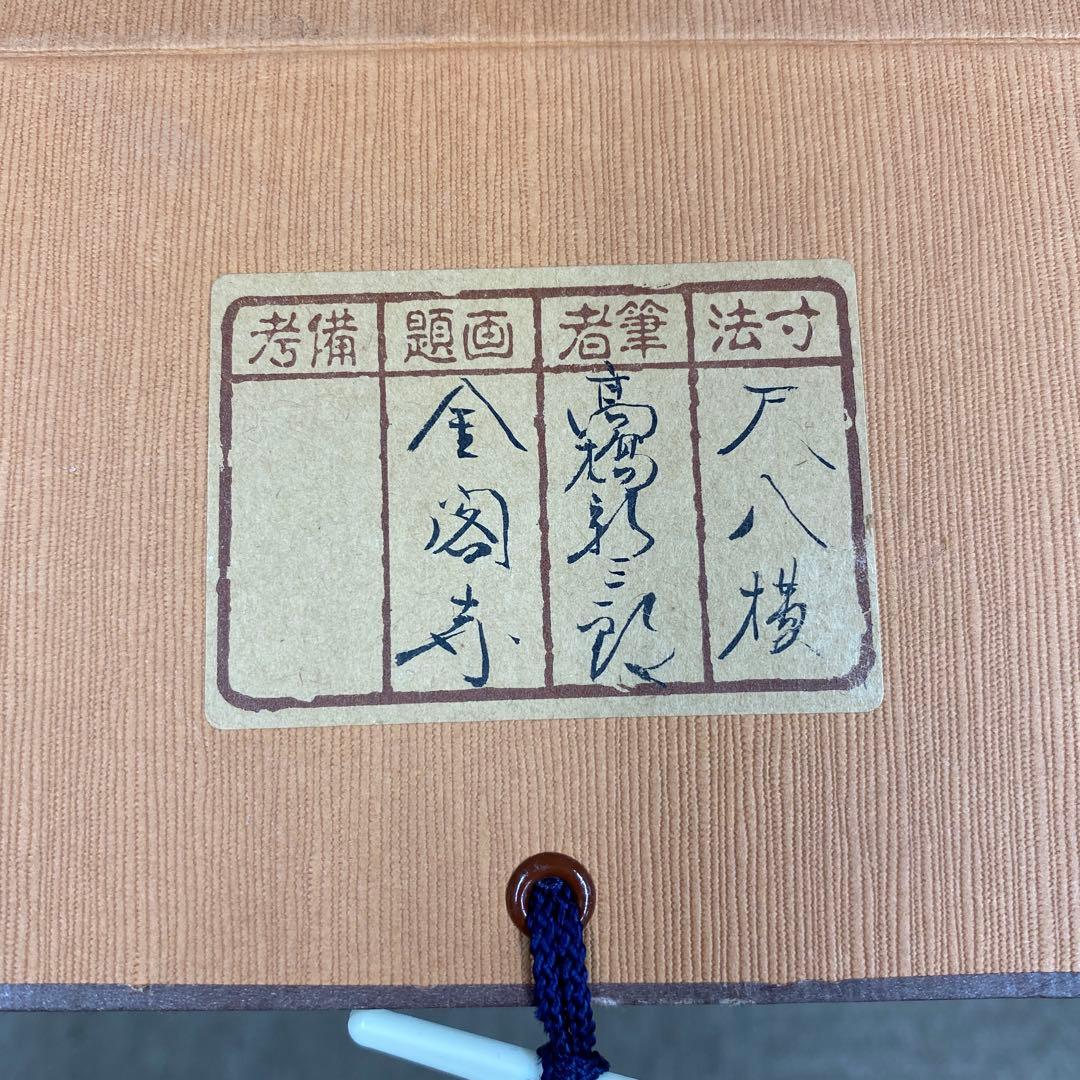 寸法
尺八横
筆者
高橋新三郎
画題
金閣寺
備考